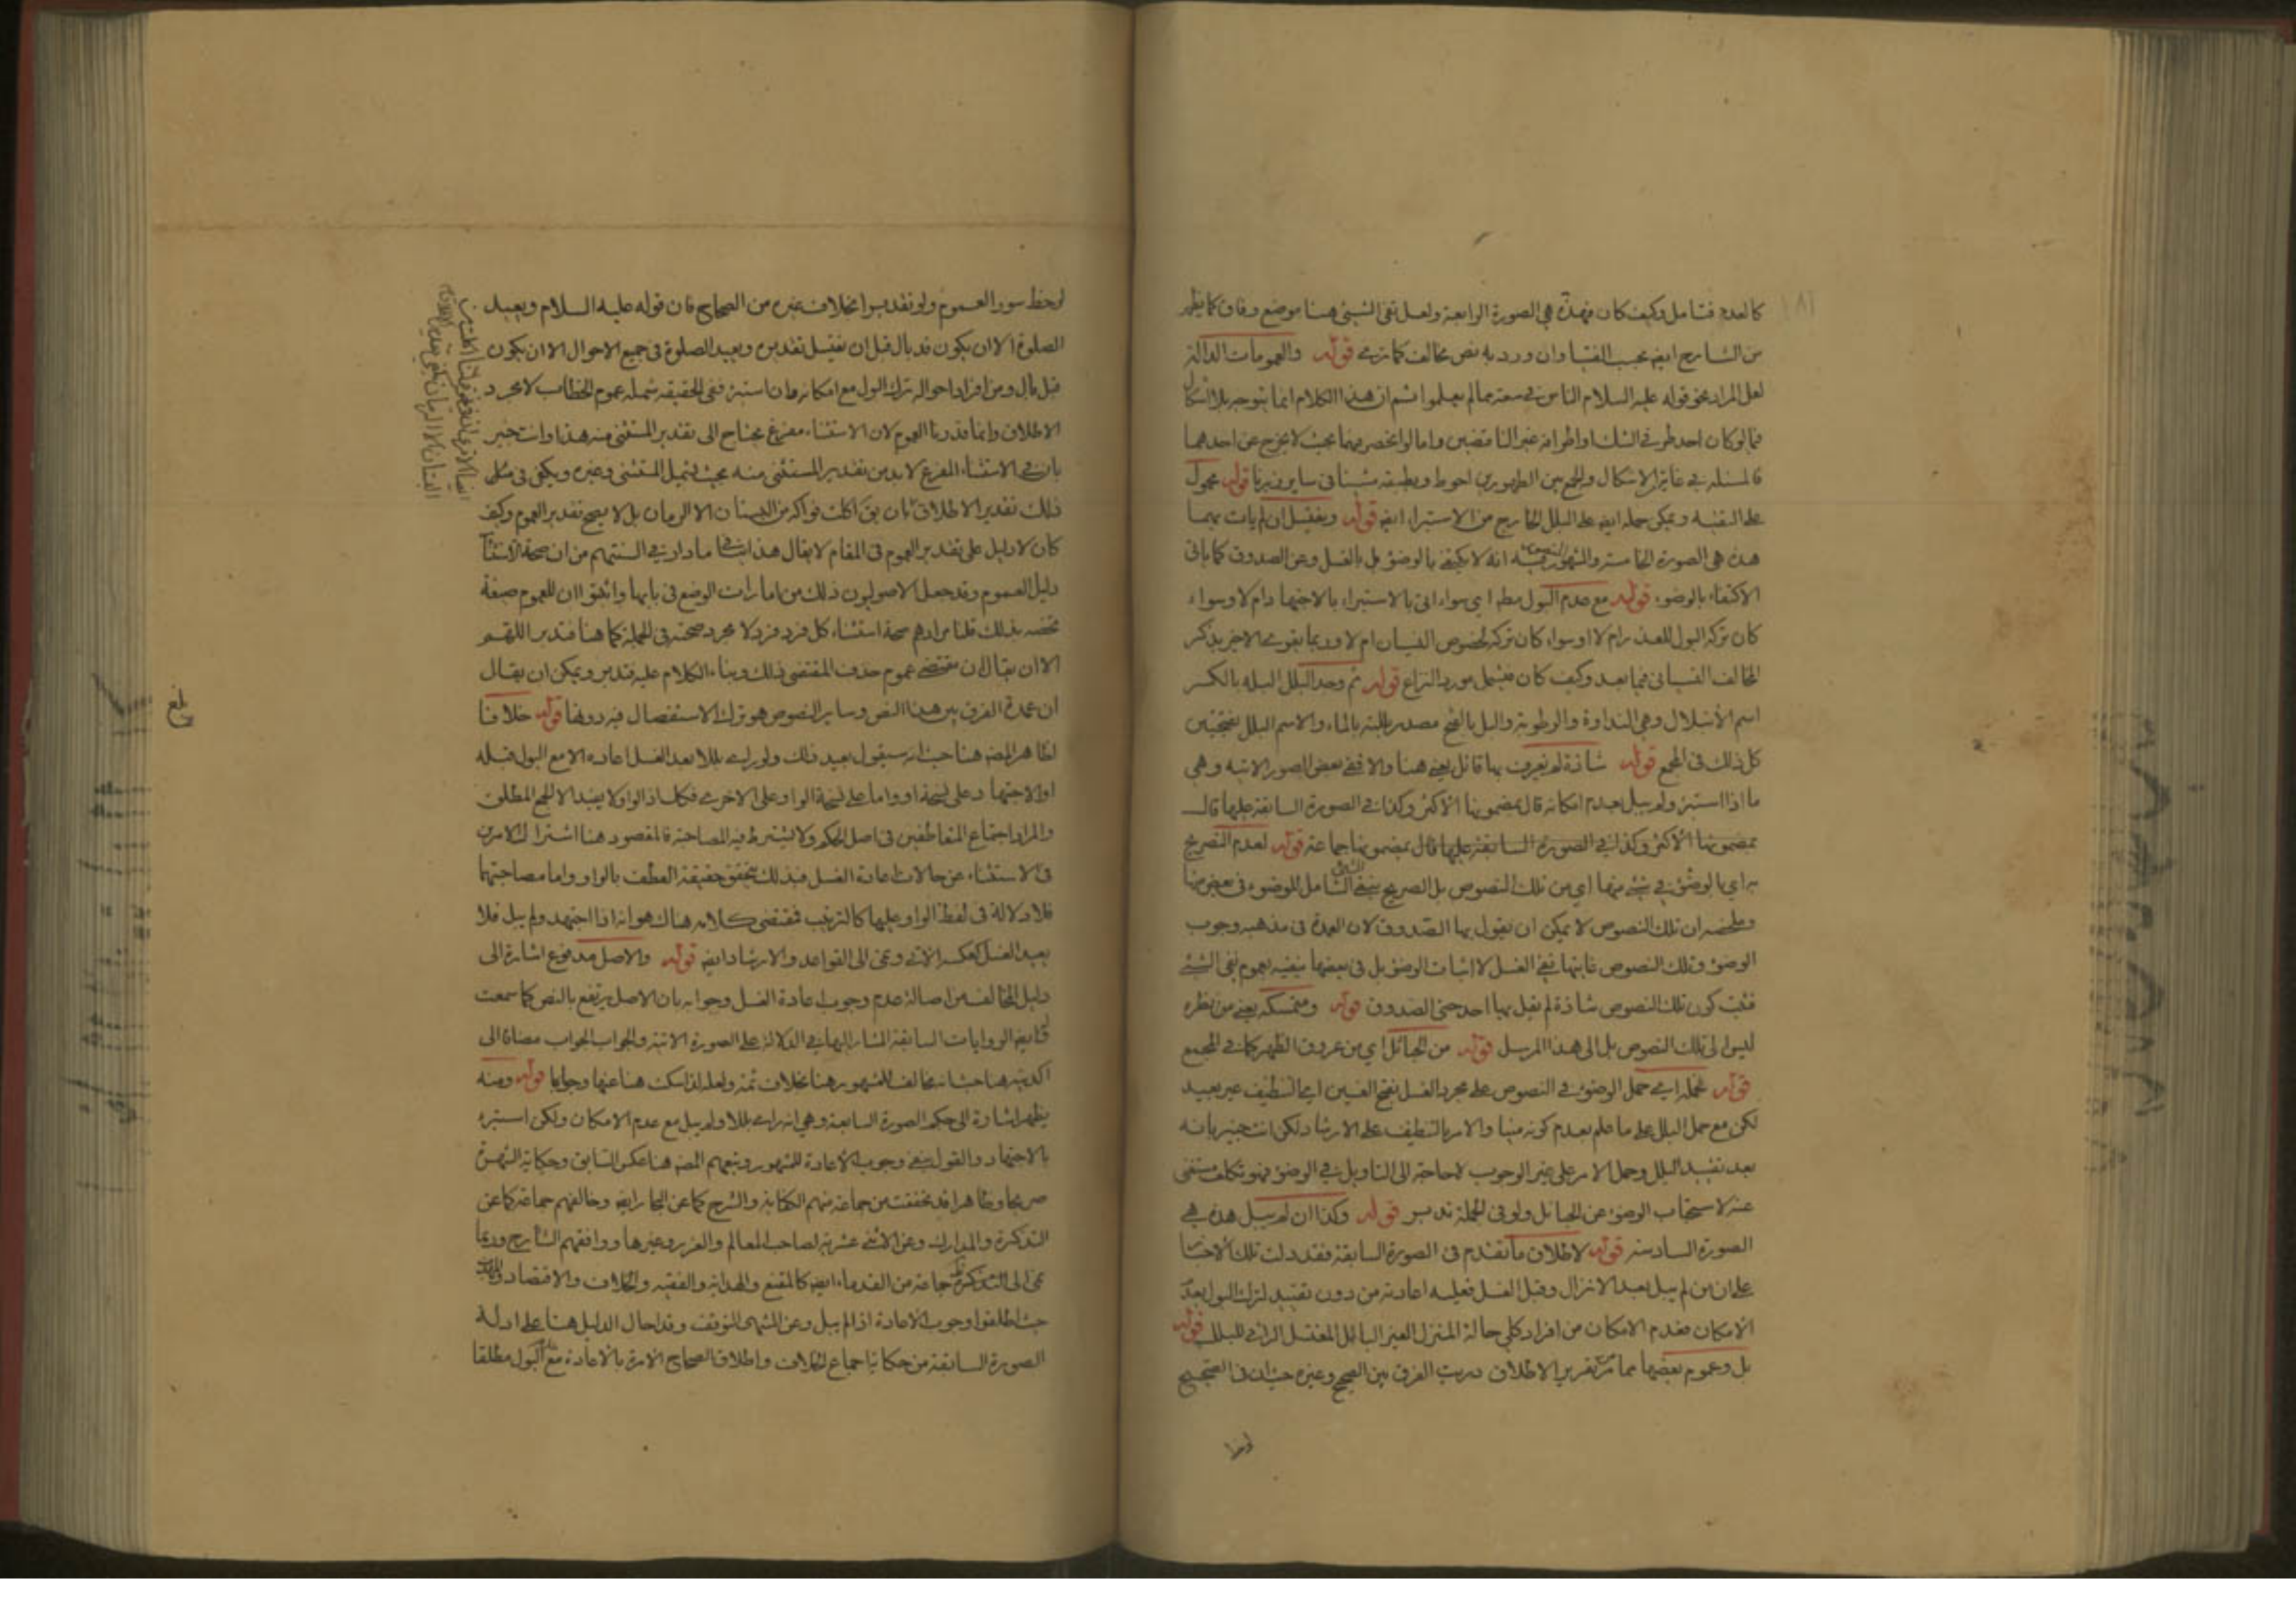 كالعدم فتامل وكيف كان فهذه هي الصورة الرابعة ولعل نفى الشيئ هنا موضع وفاق كما يظهر
من الشارح ايضا بحسب الفتيا وان ورد به نص مخالف كما ترى قوله والعمومات الدالة
لعل المراد نحو قوله عليه السلام الناس في سعة مما لم يعلموا ثم ان هذا الكلام انما يتوجه بلا اشكال
فيما لو كان احد طرفي الشك او اطرافه غير الناقضين واما لو انحصر بينهما بحيث لا يخرج عن احدهما
فالمسئلة في غاية الاشكال والجمع بين الطهورين احوط قوله محمول
على التقية ويمكن حمله ايضا على البلل الخارج من الاستبراء ايضا قوله ويغتسل ان لم يات بهما
هذه هي الصورة الخامسة والمشهور فيه انه لا يكتفى بالوضوء بل بالغسل وعن الصدوق كما ياتى
الاكتفاء بالوضوء قوله مع عدم البول مطلقا اي سواء اتى بالاستبراء بالاجتهاد ام لا وسواء
كان تركه البول للعذر ام لا وسواء كان تركه لخصوص النسيان ام لا وربما يقوى الاخير بذكر
المخالف النسيان فيما بعد وكيف كان فيشمل مورد النزاع قوله ثم وجد البلل البلة بالكسر
اسم الابتلال وهي النداوة والرطوبة والبل بالفتح مصدر بللته بالماء والاسم البلل بفتحتين
كل ذلك في المجمع قوله شاذة لم نعرف بها قائل يعنى هنا والا ففى بعض الصور الاتية وهي
ما اذا استبرء ولم يبل لعدم امكانه قال بمضمونها الاكثر وكذا في الصورة السابقة عليها قال
بمضمونها الاكثر وكذا في الصورة السابقة عليها قال بمضمونها جماعة قوله لعدم التصريح
به اي بالوضوء في شيئ منها اي من تلك النصوص بل الصريح بنفى الشيئ الشامل للوضوء في بعض منها
وملخصه ان تلك النصوص لا يمكن ان يقول بها الصدوق لان العمدة في مذهبه وجوب
الوضوء وتلك النصوص غايتها نفى الغسل لا اثبات الوضوء بل في بعضها نفيه بعموم نفى الشيئ
فثبت كون تلك النصوص شاذة لم يقل بها احد حتى الصدوق قوله ومتمسكه يعنى من نظره
ليس الى تلك النصوص بل الى هذا المرسل قوله من الحبائل اي من عروق الظهر كما في المجمع
قوله محمله اي حمل الوضوء في النصوص على مجرد الغسل بفتح الغين اي التنظيف غير بعيد
لكن مع حمل البلل على ما علم بعدم كونه منيا والامر بالتنظيف على الارشاد لكن انت خبير بانه
بعد تقييد البلل وحمل الامر على غير الوجوب لا حاجة الى التاويل في الوضوء فهو تكلف مستغنى
عنه لاستحباب الوضوء عن الحبائل ولو في الجملة تدبر قوله وكذا ان لم يبل هذه هي
الصورة السادسة قوله لاطلاق ما تقدم في الصورة السابقة فقد دلت تلك الاخبار
على ان من لم يبل بعد الانزال وقبل الغسل فعليه اعادته من دون تقييد لترك البول بعدم
الامكان فعدم الامكان من افراد كلي حالة المنزل الغير البائل المغتسل الرائى للبلل قوله
بل وعموم بعضها مما مر تقرير الاطلاق دريت الفرق بين الصحيح وغيره حيث ان فى الصحيح
لوحظ
لوحظ سور العموم ولو تقديرا بخلاف غيره من الصحاح فان قوله عليه السلام ويعيد
الصلوة الا ان يكون قد بال قبل ان يغتسل تقديره ويعيد الصلوة فى جميع الاحوال الا ان يكون
قبل بال ومن افراد احواله ترك البول مع امكانه وان استبرء ففى الحقيقه شمله عموم الخطاب لا مجرد
الاطلاق وانما قدرنا العموم لان الاستثناء مفرغ يحتاج الى تقدير المستثنى منه هذا وانت خبير
بان في الاستثناء المفرغ لابد من تقدير المستثنى منه بحيث يشمل المستثنى وغيره ويكفى فى مثل
ذلك تقدير الاطلاق بان يق اكلت فواكه من البستان الا الرمان بل لا يصح تقدير العموم وكيف
كان لا دليل على تقدير العموم فى المقام لا يقال هذا ينافى ما دار في السنتهم من ان صحة الاستثناء
دليل العموم وقد جعل الاصوليون ذلك من امارات الوضع فى بابها واثبتوا ان للعموم صيغة
تخصه بذلك قلنا مرادهم صحة استثناء كل فرد فرد لا مجرد صحته في الجملة كما هنا فتدبر اللهم
الا ان يقال ان مقتضى عموم حذف المقتضى ذلك وبناء الكلام عليه فتدبر ويمكن ان يقال
ان عمدة الفرق بين هذا النص وساير النصوص هو ترك الاستفصال فيه دونها قوله خلافا
لظاهر المص هنا حيث انه سيقول بعيد ذلك ولو راى بللا بعد الغسل اعاده الا مع البول قبله
او الاجتهاد على نسخة او واما على نسخة الواو على الاخرى فكك اذ الواو لا يفيد الا الجمع المطلق
والمراد اجتماع المتعاطفين فى اصل الحكم ولا يشترط فيه المصاحبة فالمقصود هنا اشتراك الامرين
فى الاستثناء عن حالات اعادة الغسل فبذلك يتحقق حقيقة العطف بالواو واما مصاحبتهما
فلا دلالة فى لفظ الواو عليها كالترتيب فمقتضى كلامه هناك هو انه اذا اجتهد ولم يبل فلا
يعيد الغسل كعكسه الاتى وعزى الى القواعد والارشاد ايضا قوله والاصل مدفوع اشارة الى
دليل المخالف من اصالة عدم وجوب اعادة الغسل وجوابه بان الاصل يرتفع بالنص كما سمعت
الروايات السابقة المشار اليها في الدلالة على الصورة الاتية والجواب الجواب مضافا الى
اكديته هنا حيث انه مخالف للمشهور هنا بخلاف ثمة ولعله لذا سكت هنا عنها وجوابا قوله ومنه
يظهر اشارة الى حكم الصورة السابعة وهي انه راى بللا ولم يبل مع عدم الامكان ولكن استبرء
بالاجتهاد والقول بنفى وجوب الاعادة للمشهور وتبعهم المص هنا عكس السابق وحكاية الشهرة
صريحا وظاهرا قد تحققت من جماعة منهم الكفاية والشرح كما عن البحار ايضا وخالفهم جماعة كما عن
التذكرة والمدارك وعن الاثنى عشرية لصاحب المعالم والغرر وغيرها ووافقهم الشارح وربما
عزى الى التذكرة جماعة من القدماء ايضا كالمقنع والهداية والفقيه والخلاف والاقتصاد
حيث اطلقوا وجوب الاعادة اذا لم يبل وعن المنتهى التوقف وقد احال الدليل هنا على ادلة
الصورة السابقة من حكاية اجماع الخلاف واطلاق الصحاح الامرة بالاعادة مع عدم البول مطلقا
بلغ